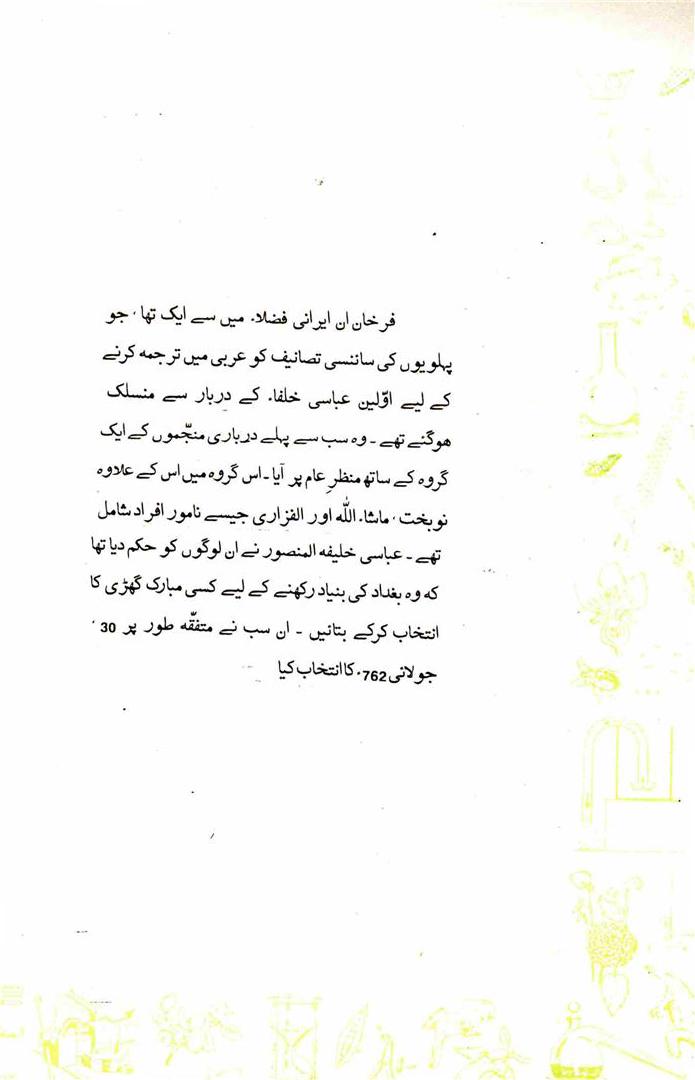 فرخان ان ایرانی فضلاء میں سے ایک تھا، جو
پہلویوں کی سائنسی تصانیف کو عربی میں ترجمہ کرنے
کے لیے اوّلین عباسی خلفاء کے دربار سے منسلک
ھوگئے تھے ـ وہ سب سے پہلے درباری منجّموں کے ایک
گروہ کے ساتھ منظرِ عام پر آیا ـ اس گروہ میں اس کے علاوہ
نوبخت، ماشاء اللّٰہ اور الفزاری جیسے نامور افراد شامل
تھے ـ عباسی خلیفہ المنصور نے ان لوگوں کو حکم دیا تھا
کہ وہ بغداد کی بنیاد رکھنے کے لیے کسی مبارک گھڑی کا
انتخاب کرکے بتائیں ـ ان سب نے متفّقہ طور پر 30،
جولائی 762ء کا انتخاب کیا